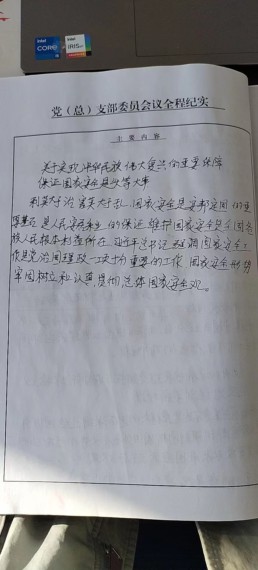 intel
CORE
i5
intel
IRIS Xe
党（总）支部委员会议全程纪实
主要内容
关于实现中华民族伟大复兴的重要保障
保证国家安全是头等大事
利莫大于治 害莫大于乱 国家安全是安邦定国的重
要基石 是人民安居乐业的保证 维护国家安全是全国各
族人民根本利益所在 习近平总书记强调国家安全工
作是党治国理政一项十分重要的工作 国家安全形势
牢固树立和认真贯彻总体国家安全观。